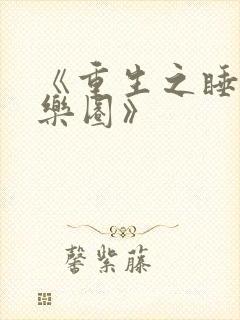 《重生之睡
樂園》
馨紫藤